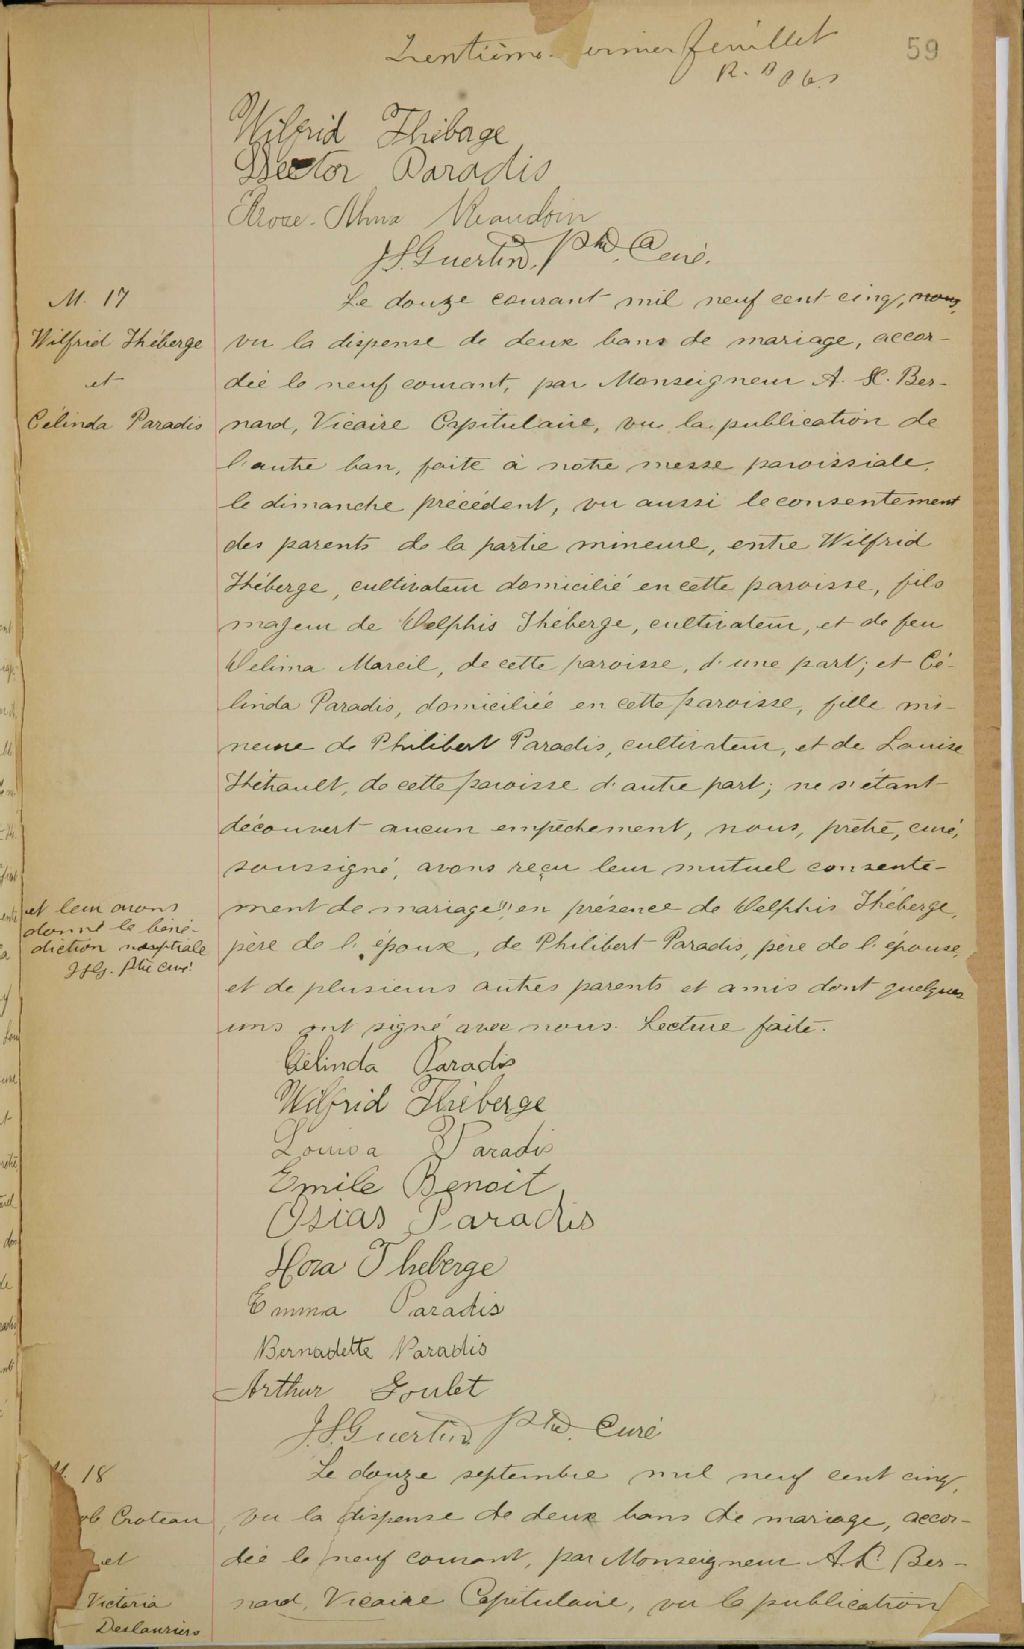 Trentième feuillet
59
Wilfrid Théberge
Hector Paradis
Rose-Alma Beaudoin
J.S. Guertin, Ptre, Curé.
M. 17
Wilfrid Théberge
et
Célinda Paradis
Le douze courant mil neuf cent cinq, nous,
vu la dispense de deux bans de mariage, accor-
dée le neuf courant, par Monseigneur A. X. Ber-
nard, Vicaire Capitulaire, vu la publication de
l'autre ban, faite à notre messe paroissiale,
le dimanche précédent, vu aussi le consentement
des parents de la partie mineure, entre Wilfrid
Théberge, cultivateur domicilié en cette paroisse, fils
majeur de Delphis Théberge, cultivateur, et de feu
Delima Mareil, de cette paroisse, d'une part; et Cé-
linda Paradis, domiciliée en cette paroisse, fille mi-
neure de Philibert Paradis, cultivateur, et de Louise
Théhault, de cette paroisse d'autre part; ne s'étant
découvert aucun empêchement, nous, prêtre, curé,
soussigné, avons reçu leur mutuel consente-
ment de mariage" en présence de Delphis Théberge,
père de l'époux, de Philibert Paradis, père de l'épouse,
et de plusieurs autres parents et amis dont quelques
uns ont signé avec nous. Lecture faite.
et leur avons
donné la béné-
diction nuptiale
J.S.G. Ptre curé
Célinda Paradis
Wilfrid Théberge
Louisa Paradis
Emile Benoit
Osias Paradis
Flora Theberge
Emma Paradis
Bernadette Paradis
Arthur Goulet
J.S. Guertin, Ptre, Curé
M. 18
Croteau
et
Victoria
Deslauriers
Le douze septembre mil neuf cent cinq,
vu la dispense de deux bans de mariage, accor-
dée le neuf courant, par Monseigneur A. X. Ber-
nard, Vicaire Capitulaire, vu la publication